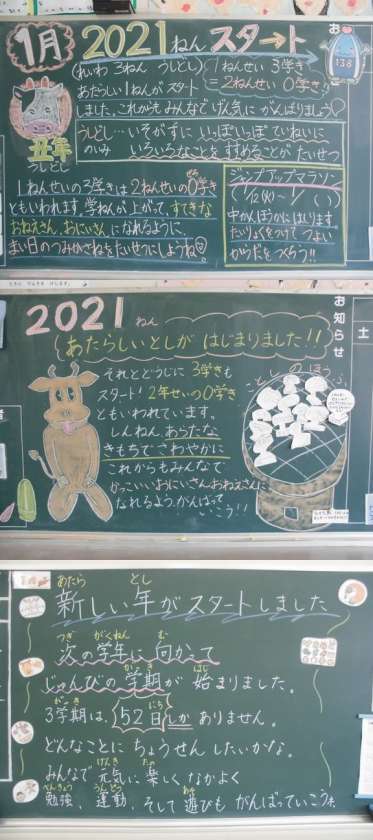 1月
2021ねん スタート
138
(れいわ 3ねん うしどし)
1ねんせい 3学き
=2ねんせい 0学き!!
あたらしい1ねんが スタート
しました。これからもみんなで げん気に がんばりましょう
丑年
うしどし
うしどし…いそがずに いっぽいっぽ ていねいに
のいみ いろいろなことを すすめることが たいせつ
1ねんせいの3学きは 2ねんせいの0学き
ともいわれます。学ねんが 上がって、すてきな
おねえさん、おにいさんになれるように、
まい日のつみかさねをたいせつにしようね
ジャンプアップマラソン
1/12(火)~1/ ( )
中かんほうかにはしります
たいりょくをつけて つよい
からだを つくろう!!
2021ねん
(あたらしいとしが はじまりました!!)
おしらせ
土
それとどうじに 3学きも
スタート! 2年せいの0学き
ともいわれています。
しんねん、あらたな
きもちでさわやかに
これからもみんなで
かっこいいおにいさんおねえさんに
なれるよう、がんばって
いこう!!
ことしのほうふ
新しい年がスタートしました
あたら
とし
次の学年に 向かって
つぎ
がくねん
む
じゅんびの 学期が 始まりました。
がっき
はじ
3学期は、52日しか ありません。
がっき
にち
どんなことに ちょうせん したいかな。
みんなで 元気に 楽しく なかよく
げんき
たの
勉強、運動、そして 遊びも がんばっていこう
べんきょう
うんどう
あそ